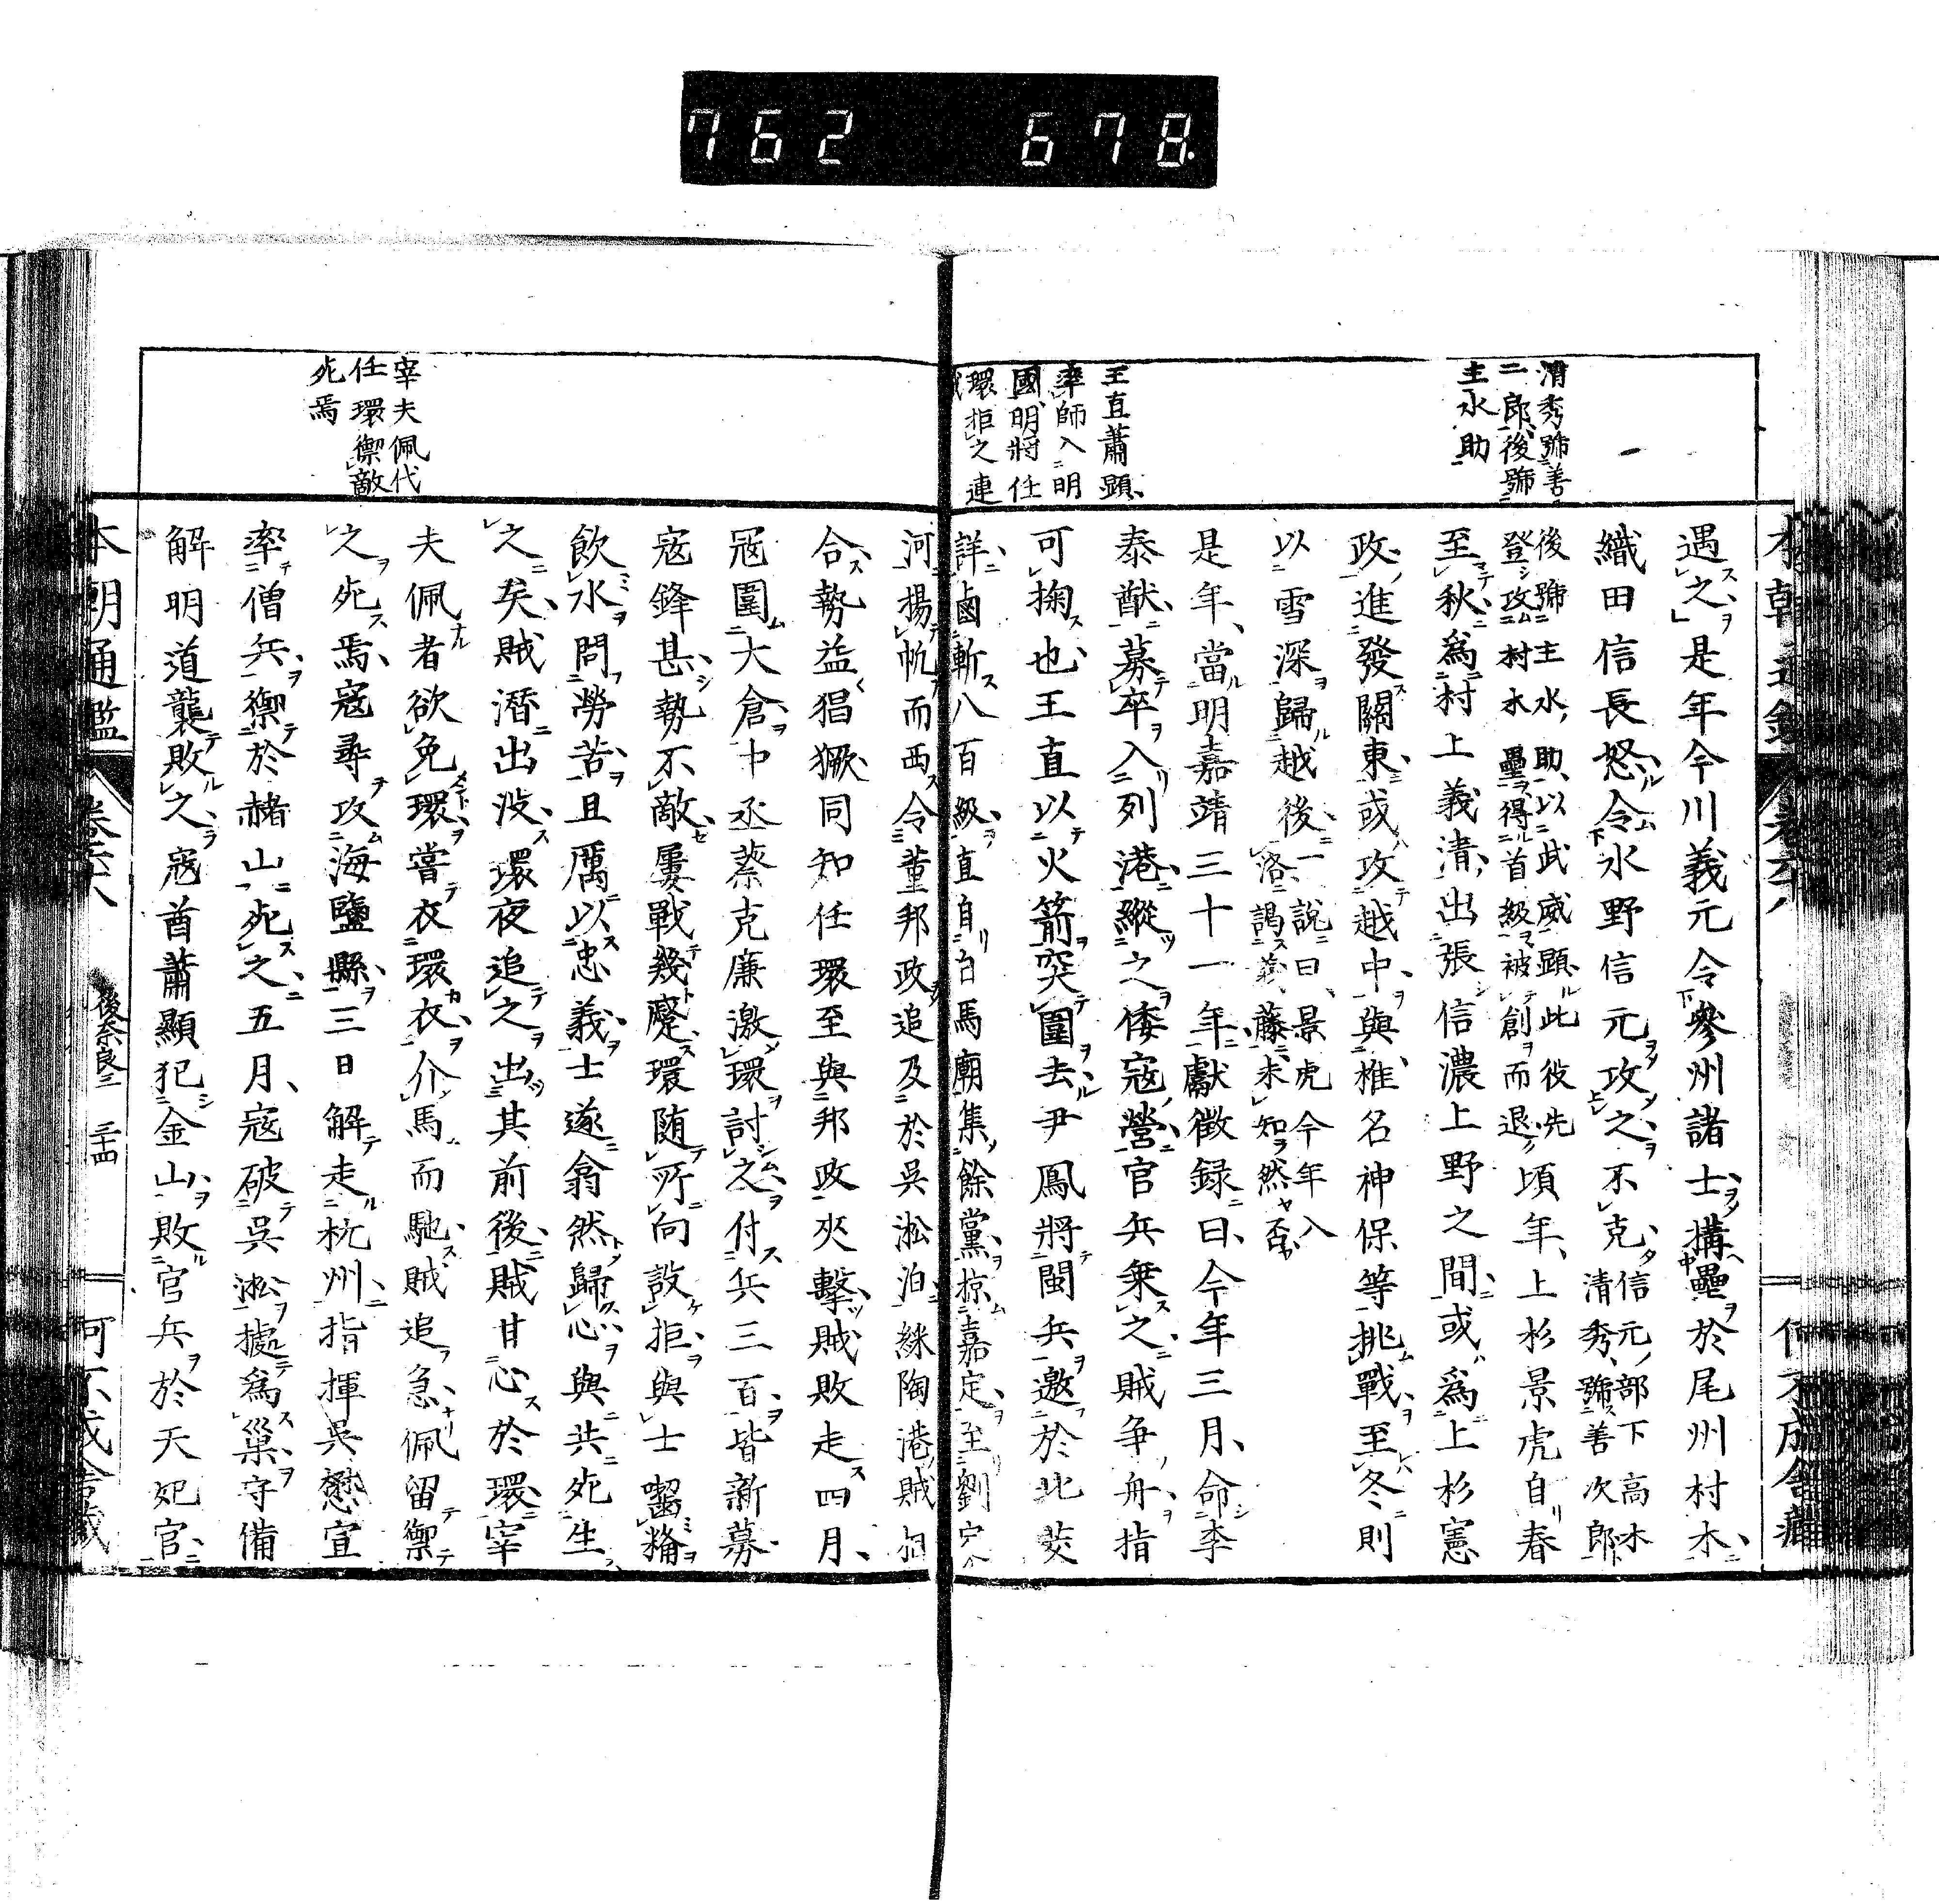 762 678.
清秀號善
二郎後號
主水助
王直蕭顯
率師入明
國明將任
環拒之連
宰夫佩代
任環禦敵
死焉
遇之是年今川義元令參州諸士構壘於尾州村木
織田信長怒令水野信元攻之不克信元部下高木
清秀號善次郎
後號主水助以武威顯此役先
登攻村木壘得首級被創而退頃年上杉景虎自春
至秋為村上義清出張信濃上野之間或為上杉憲
政進發關東或攻越中與椎名神保等挑戰至冬則
以雪深歸越後一說曰景虎今年入
洛謁義藤未知然否
是年當明嘉靖三十一年獻徵録曰今年三月命李
泰猷募卒入列港縱之倭寇營官兵乗之賊争舟指
可掬也王直以火箭突圍去尹鳳將閩兵邀於北茭
詳鹵斬八百級直自白馬廟集餘黨掠嘉定至劉
河揚帆而西令董邦政追及於吳淞泊練陶港賊
合勢益猖獗同知任環至與邦政夾擊賊敗走四月
冦圍大倉中丞蔡克廉激環討之付兵三百皆新募
寇鋒甚勢不敵屢戰幾蹙環随所向設拒與士嚙糒
飲水問勞苦且厲以忠義士遂翕然歸心與共死生
之矣賊潛出没環夜追之出其前後賊甘心於環宰
夫佩者欲免環嘗衣環衣介馬而馳賊追急佩留禦
之死焉寇尋攻海鹽縣三日解走杭州指揮吳懋宣
率僧兵禦於赭山死之五月寇破吳淞據為巢守備
解明道襲敗之寇酋蕭顯犯金山敗官兵於天妃官
本朝通鑑 卷六八 後奈良三 三十四